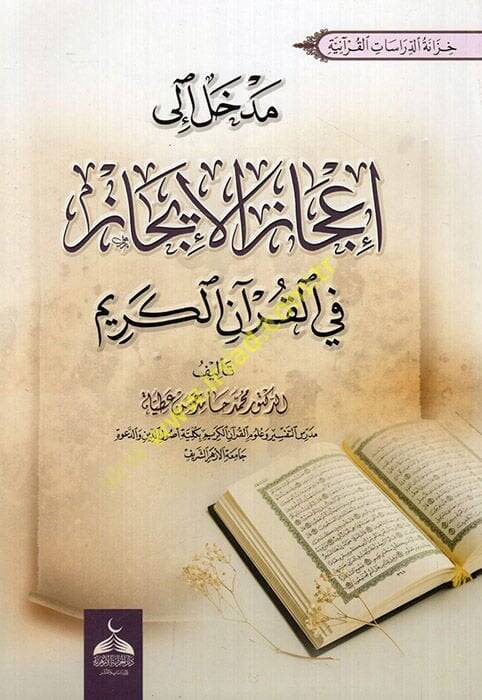 خِزَانَةُ الدِّرَاسَاتِ القُرْآنِيَّةِ
مَدْخَل إِلى
إِعْجَازِ الإِيجَازِ
في القُرْآنِ الكَرِيمِ
تَأْلِيفُ
الدكتور محمد حامد عطية
مدرس التفسير وعلوم القرآن الكريم بكلية أصول الدين والدعوة
جامعة الأزهر الشريف